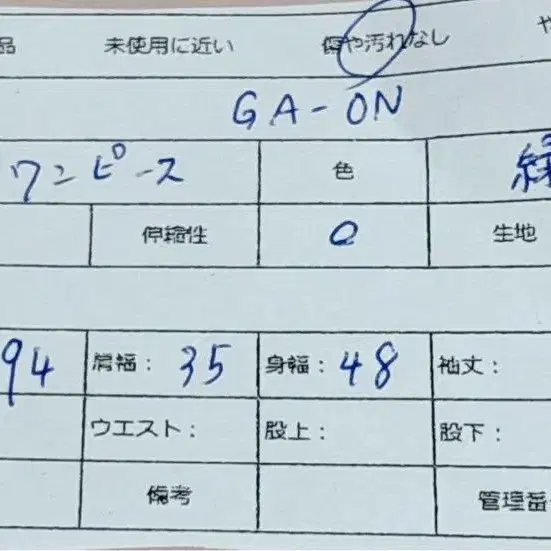 品 未使用に近い 傷や汚れなし や
GA-ON
ワンピース 色 緑
伸縮性 0 生地
94 肩幅: 35 身幅: 48 袖丈:
ウエスト: 股上: 股下:
備考 管理番